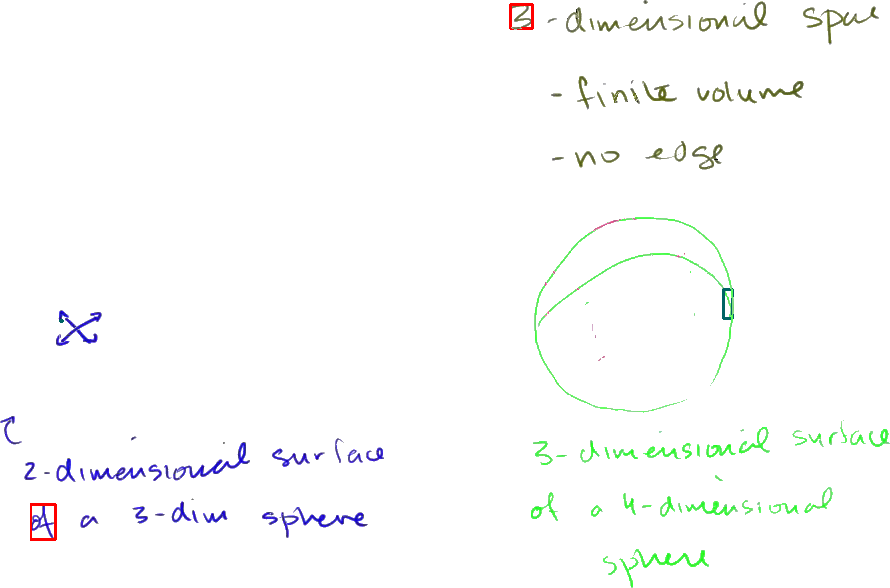 3-dimensional space
- finite volume
- no edge
2-dimensional surface
of a 3-dim sphere
3-dimensional surface
of a 4-dimensional
sphere